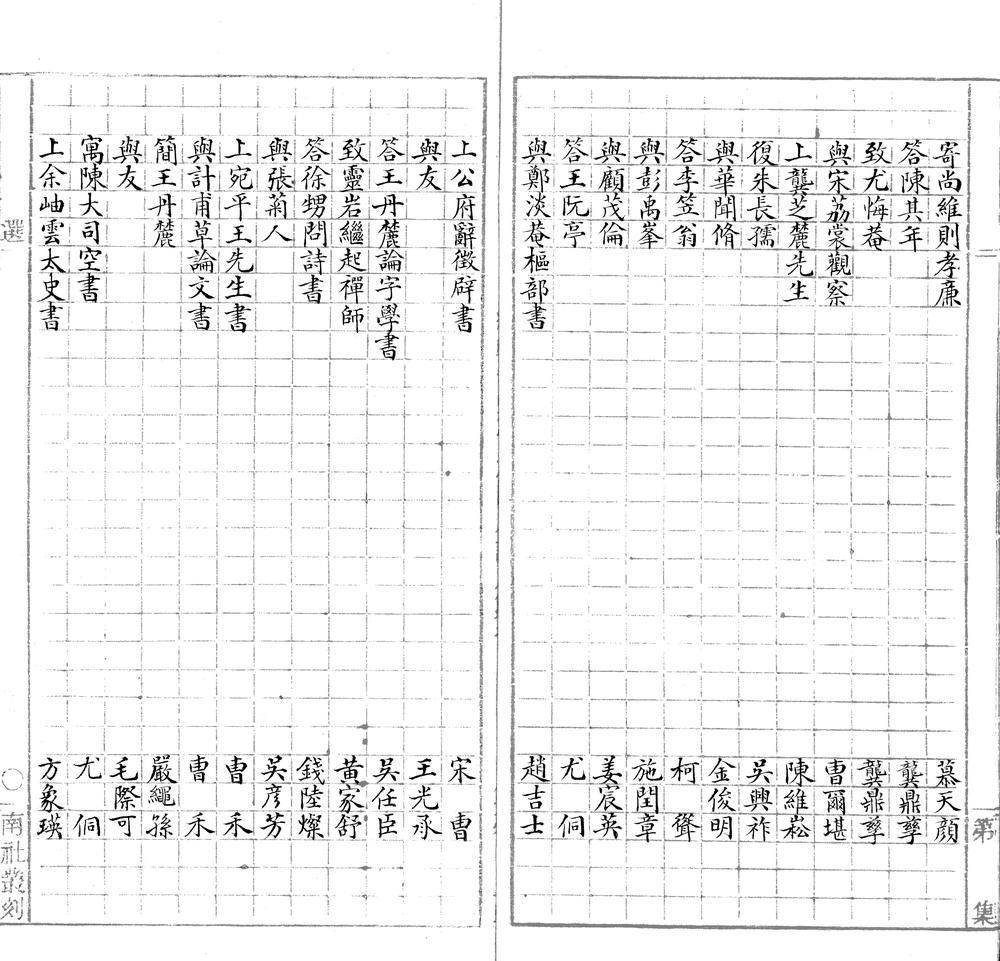 寄尚維則孝廉 慕天顏
答陳其年 龔鼎孳
致尤悔菴 龔鼎孳
與宋荔裳觀察 曹爾堪
上龔芝麓先生 陳維崧
復朱長孺 吳興祚
與華聞脩 金俊明
答李笠翁 柯聳
與彭禹峯 施閏章
與顧茂倫 姜宸英
答王阮亭 尤侗
與鄭淡菴樞部書 趙吉士
第 集
上公府辭徵辟書 宋曹
與友 王光承
答王丹麓論字學書 吳任臣
致靈岩繼起禪師 黃家舒
答徐甥問詩書 錢陸燦
與張菊人 吳彥芳
上宛平王先生書 曹禾
與計甫草論文書 曹禾
簡王丹麓 嚴繩孫
與友 毛際可
寓陳大司空書 尤侗
上余岫雲太史書 方象瑛
選
〇
南社叢刻